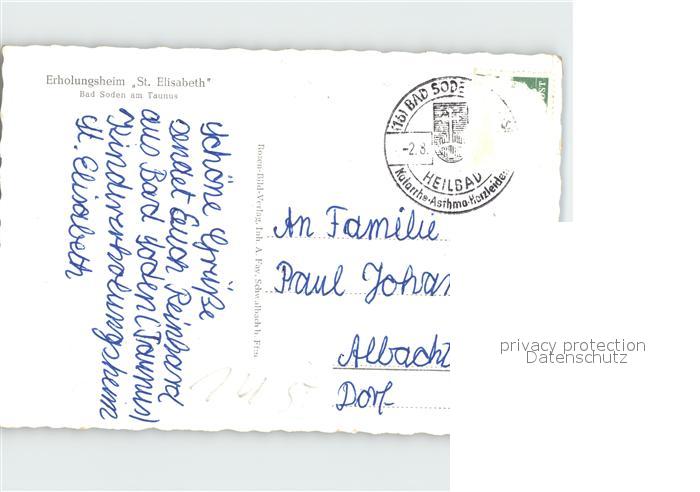 Erholungsheim „St. Elisabeth"
Bad Soden am Taunus
Schöne Grüße
sendet Euch Reinhard
aus Bad Soden (Taunus)
Kindererholungsheim
St. Elisabeth
Rosen-Bild-Verlag, Inh. A. Fay, Schwalbach b. Ffm
(16) BAD SODE
-2.8.
HEILBAD
Katarrhe-Asthma-Herzleiden
An Familie
Paul Johan
Albach
Dorf
privacy protection
Datenschutz